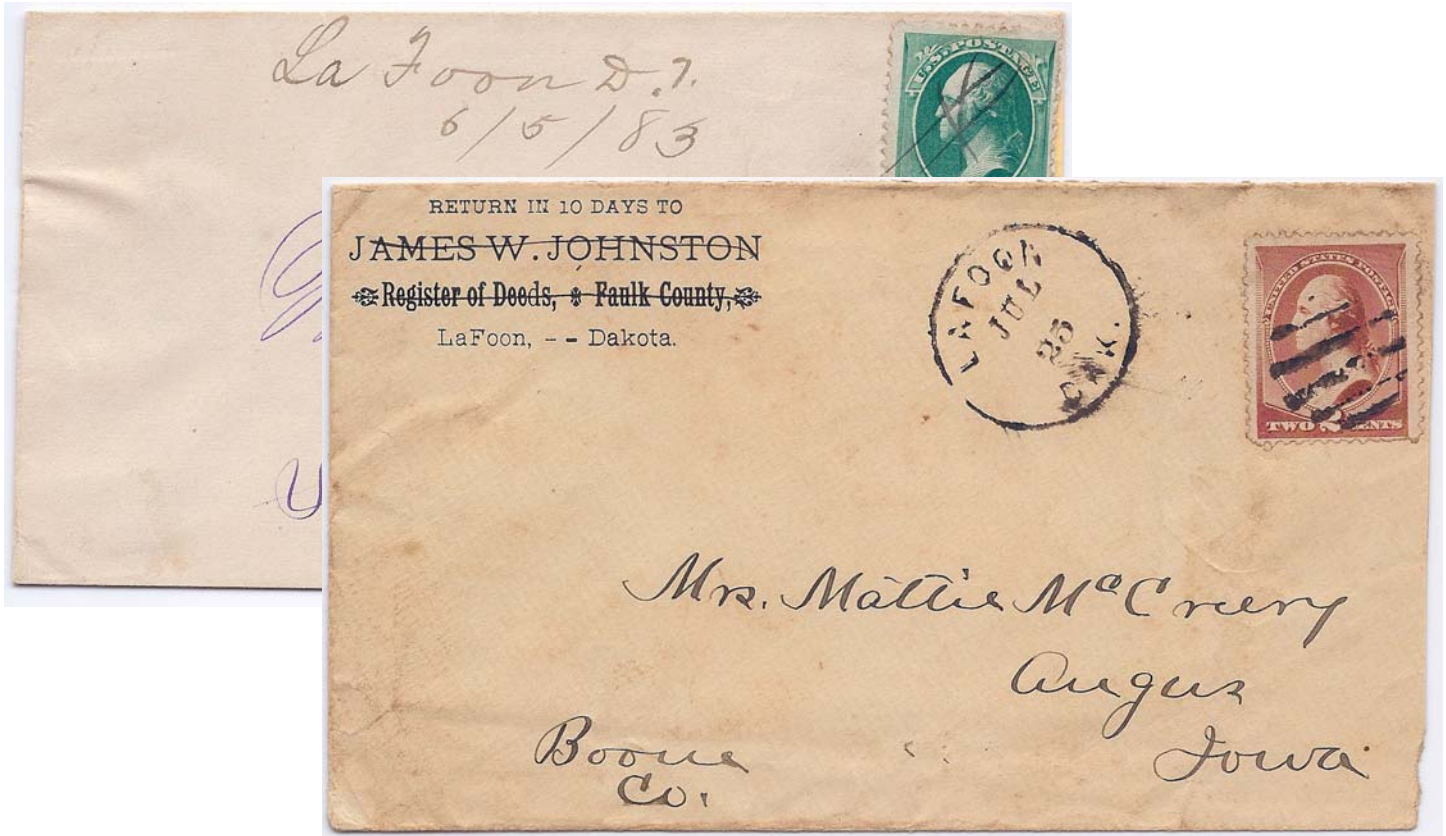 La Foon D.T.
6/5/83
U.S. POSTAGE
RETURN IN 10 DAYS TO
JAMES W. JOHNSTON
Register of Deeds, Faulk County,
LaFoon, - - Dakota.
LAFOON
JUL
25
DAK.
UNITED STATES POSTAGE
TWO 2 CENTS
Mrs. Mattie McCreery
Angus
Boone Iowa
Co.